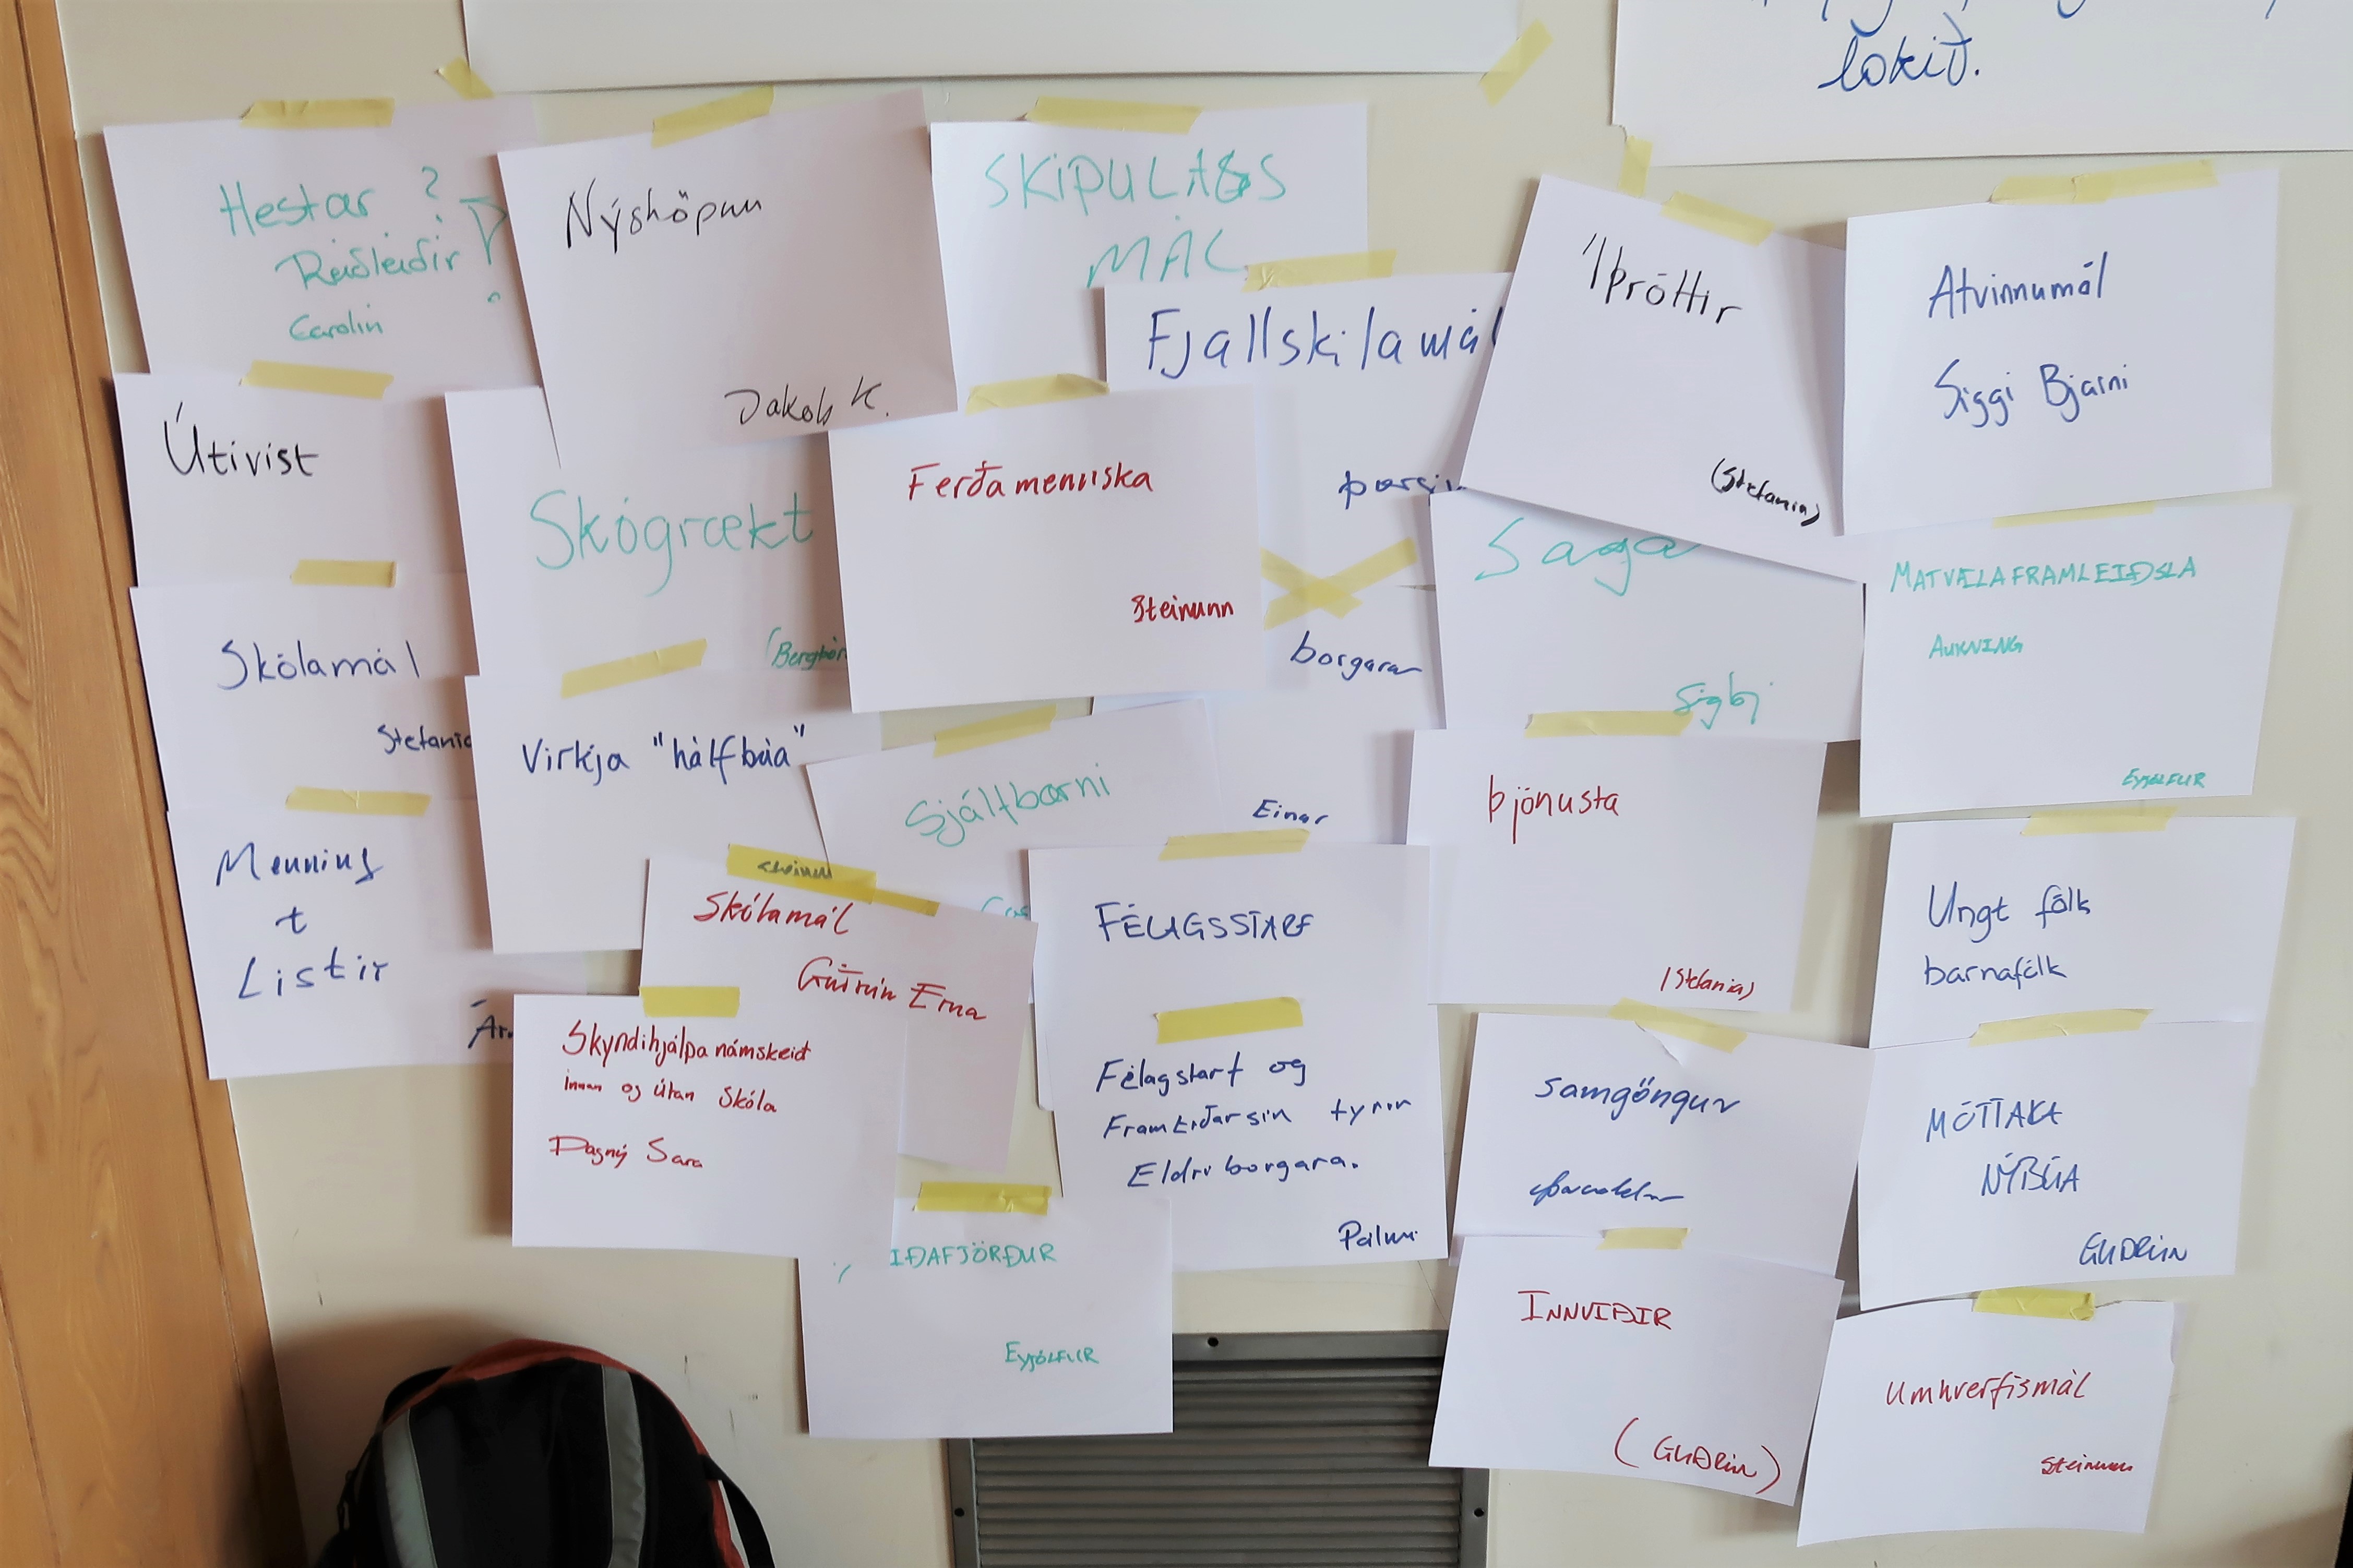 lokið.
Hestar ?
Reiðleiðir
Carolin
Nýsköpun
Jakob K.
SKIPULAGS
MÁL
Fjallskilamál
Íþróttir
(Stefanía)
Atvinnumál
Siggi Bjarni
Útivist
Skógrækt
(Bergþór
Ferðamennska
Steinunn
borgara
Einar
Saga
Sigbj
MATVÆLAFRAMLEIÐSLA
AUKNING
EYJÓLFUR
Skólamál
Stefanía
Virkja "hálfbúa"
Sjálfbærni
Þjónusta
(Stefanía)
Menning
+
Listir
Ár
Skólamál
Guðrún Erna
FÉLAGSSTARF
Ungt fólk
barnafólk
Skyndihjálpa námskeið
innan og útan skóla
Dagný Sara
Félagstarf og
Framtíðarsín fyrir
Eldri borgara.
Pálmi
Samgöngur
MÓTTAKA
NÝBÚA
GUÐRÚN
IÐAFJÖRÐUR
EYJÓLFUR
INNVIÐIR
(GUÐRÚN)
Umhverfismál
Steinunn